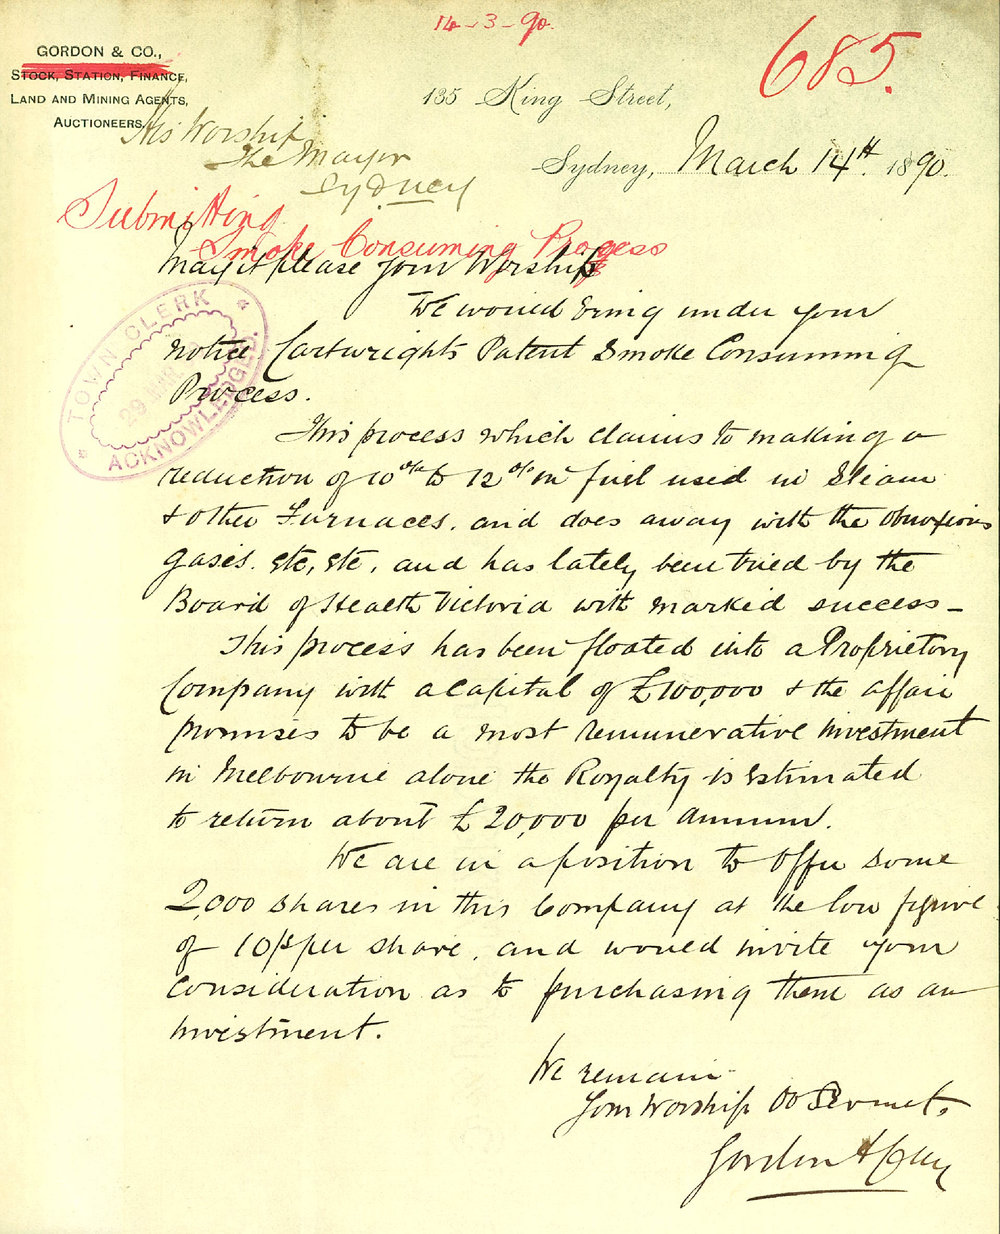 14-3-90.
685.
GORDON & CO.,
STOCK, STATION, FINANCE,
LAND AND MINING AGENTS,
AUCTIONEERS.
135 King Street,
Sydney, March 14th. 1890.
His Worship
The Mayor
Sydney
Submitting
Smoke Consuming Process
May it please Your Worship
We would bring under your
notice Cartwrights Patent Smoke Consuming
Process.
TOWN CLERK
29 MAR
ACKNOWLEDGED.
This process which claims to making a
reduction of 10% to 12% in fuel used in Steam
& other Furnaces. and does away with the obnoxious
gases. etc, etc, and has lately been tried by the
Board of Health Victoria with marked success -
This process has been floated into a Proprietory
Company with a Capital of £100,000 & the affair
promises to be a most remunerative investment
in Melbourne alone the Royalty is estimated
to return about £20,000 per annum.
We are in a position to offer some
2,000 shares in this Company at the low figure
of 10/- per share, and would invite your
consideration as to purchasing them as an
investment.
We remain
Your Worship Ob Servants
Gordon & Coy